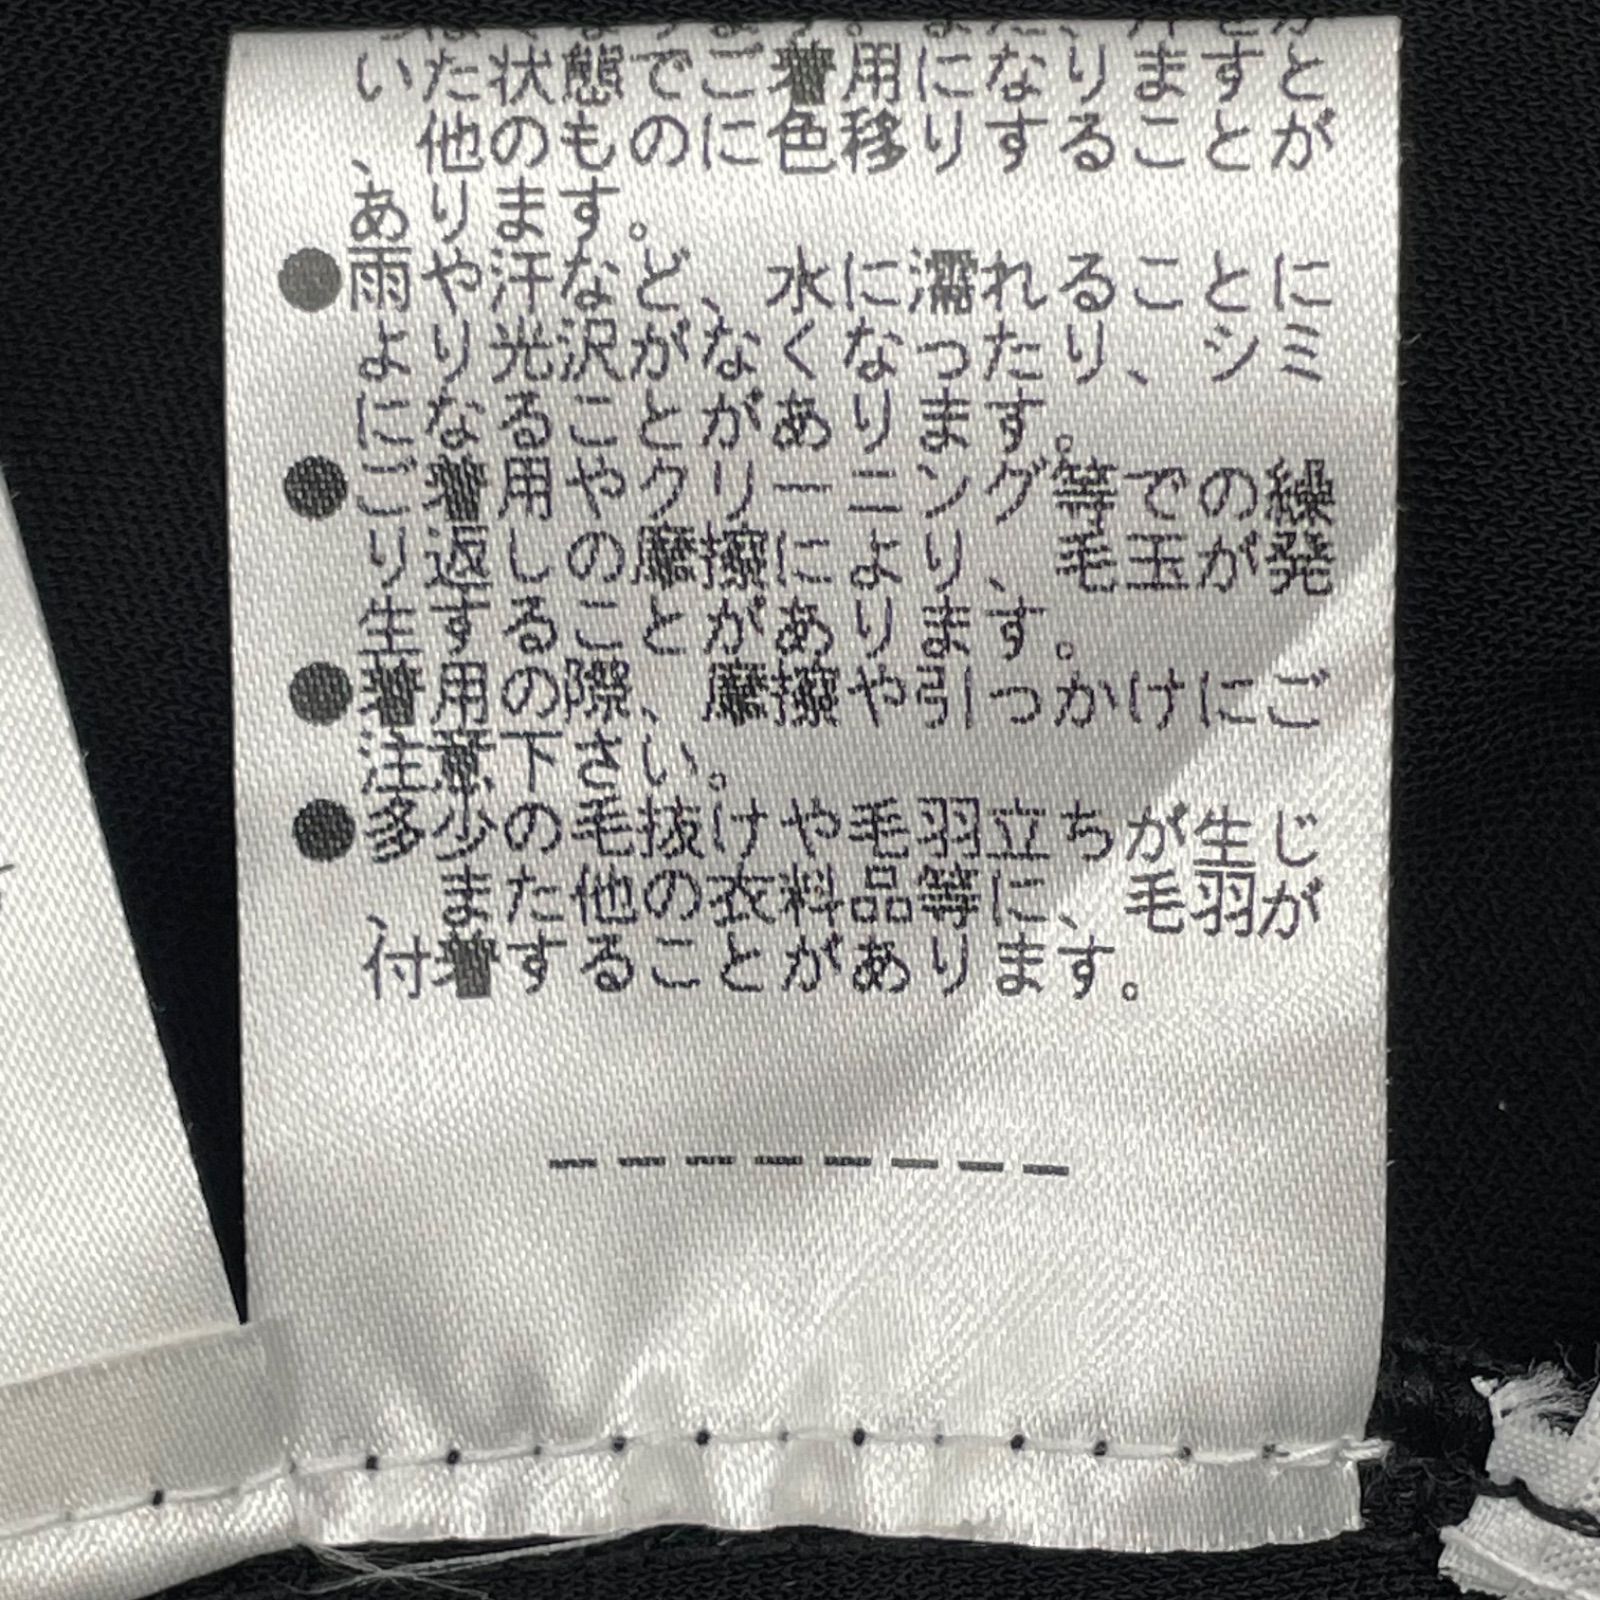 いた状態でご着用になりますと
、他のものに色移りすることが
あります。
●雨や汗など、水に濡れることに
より光沢がなくなったり、シミ
になることがあります。
●ご着用やクリーニング等での繰
り返しの摩擦により、毛玉が発
生することがあります。
●着用の際、摩擦や引っかけにご
注意下さい。
●多少の毛抜けや毛羽立ちが生じ
、また他の衣料品等に、毛羽が
付着することがあります。
--------